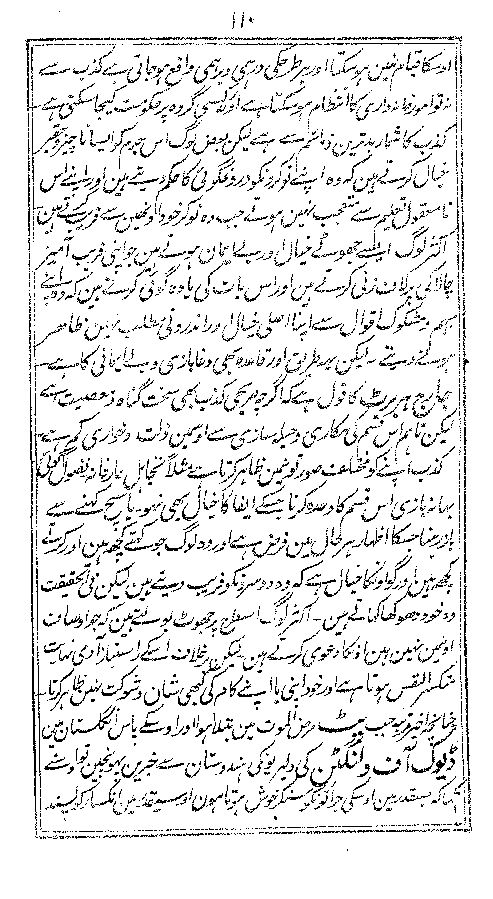 ۱۱۰
اوسکا قیام نہین ہو سکتا اور ہر طرحکی درہمی و برہمی واقع ہو جاتی ہے کذب سے
نہ تو امور خانہ داری کا انتظام ہو سکتا ہے اور نہ کسی گروہ پر حکومت کیجا سکتی ہے
کذب کا شمار بدترین ذمائم سے ہے لیکن بعض لوگ اس جرم کو ایسا ناچیز و حقیر
خیال کرتے ہین کہ وہ اپنے نوکرونکو دروغگوئی کا حکم دیتے ہین اور اپنے اس
نامعقول تعلیم سے متعجب نہین ہوتے جب وہ نوکر خود اونہین سے فریب کرتے ہین
اکثر لوگ ایسے جھوٹے خیال اور بے ایمان ہوتے ہین جو اپنی فریب آمیز
چالاکی پر لاف زنی کرتے ہین اور اس بات کی یاوہ گوئی کرتے ہین کہ وہ اپنے
مبہم و مشکوک اقوال سے اپنا اصلی خیال اور اندرونی مطلب نہین ظاہر
ہونے دیتے ۔ لیکن یہہ طریق اور قاعدہ بھی دغابازی و بے ایمانی کا ہے
جارج ہربرٹ کا قول ہے کہ اگرچہ صریحی کذب بھی سخت گناہ و معصیت ہے
لیکن تاہم اس قسم کی مکاری و حیلہ سازی سے اوسمین ذلت و خواری کم ہے
کذب اپنے کو مختلف صورتونمین ظاہر کرتا ہے مثلاً تجاہل عارفانہ فضول گوئی
بہانہ بازی اس قسم کا وعدہ کرنا جسکے ایفا کا خیال بھی نہو۔ یا سچ کہنے سے
باز رہنا جسکا اظہار ہر حال مین فرض ہے اور وہ لوگ جو کہتے کچھ ہین اور کرتے
کچھ ہین اور گو اونکا خیال ہے کہ وہ دوسرونکو فریب دیتے ہین لیکن فی الحقیقت
وہ خود دھوکھا کھاتے ہین ۔ اکثر لوگ اسطرح پر جھوٹ بولتے ہین کہ جو اوصاف
اونمین نہین ہین اونکا دعوی کرتے ہین لیکن برخلاف اسکے راستباز آدمی نہایت
منکسر النفس ہوتا ہے اور خود اپنی یا اپنے کام کی کبھی شان و شوکت نہین ظاہر کرتا ۔
چنانچہ اخیر مرتبہ جب پٹ مرض الموت مین مبتلا ہوا اور اوسکے پاس انگلستان مین
ڈیوک آف ولنگٹن کی دلیریونکی ہندوستان سے خبرین پہونچین تو اوسنے
کہا کہ جسقدر مین اوسکی جرأتونکو سنکر خوش ہوتا ہون اوسیقدر مین انکسار کو پسند